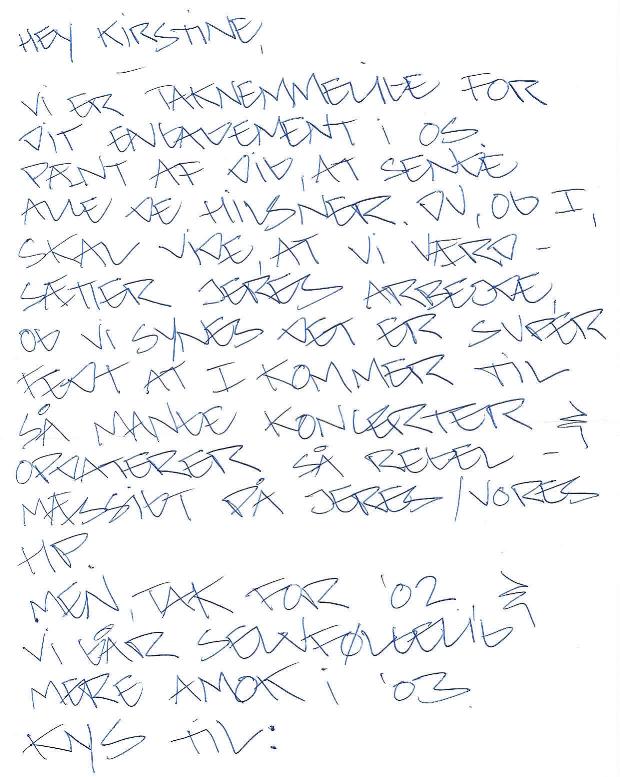 HEY KIRSTINE,
VI ER TAKNEMMELIGE FOR
DIT ENGAGEMENT I OS.
PÆNT AF DIG, AT SENDE
ALLE DE HILSNER. DU, OG I,
SKAL VIDE, AT VI VÆRD-
SÆTTER JERES ARBEJDE,
OG VI SYNES DET ER SUPER
FEDT AT I KOMMER TIL
SÅ MANGE KONCERTER &
OPDATERER SÅ REGEL-
MÆSSIGT PÅ JERES/VORES
HP.
MEN, TAK FOR '02 &
VI GÅR SELVFØLGELIG
MERE AMOK I '03.
KYS TIL: